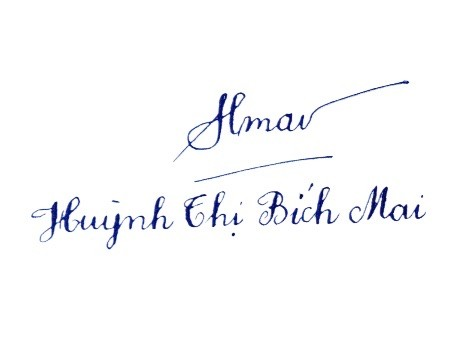 Hmai
Huỳnh Thị Bích Mai